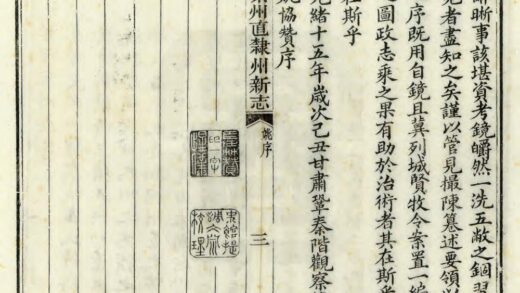 晰事該堪資考鏡皭然一洗五敝之錮
見者盡知之矣謹以管見撮陳纂述要領以
序既用自鏡且冀列城賢牧令案置一編
圖政志乘之果有助於治術者其在斯
在斯乎
光緒十五年歲次己丑甘肅鞏秦階觀察
姚協贊序
州直隸州新志
姚序
三